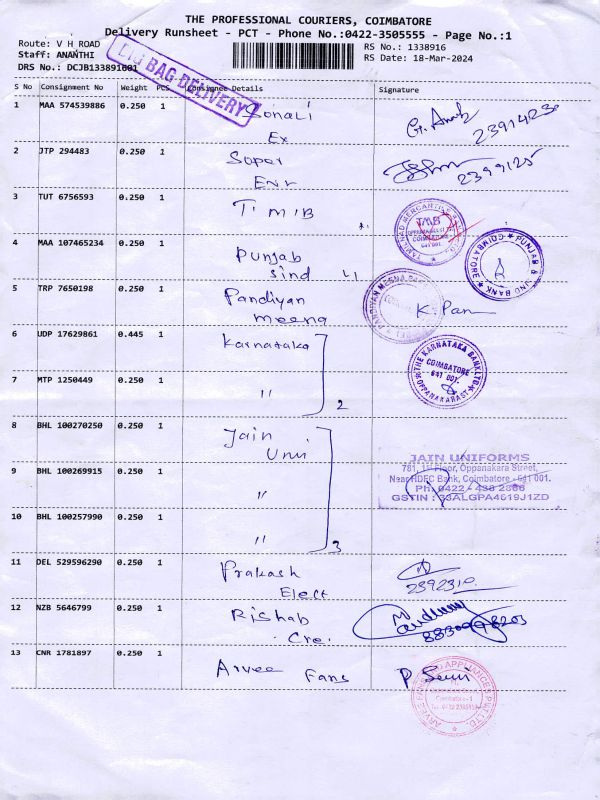 THE PROFESSIONAL COURIERS, COIMBATORE
Delivery Runsheet - PCT - Phone No.:0422-3505555 - Page No.:1
Route: V H ROAD
RS No.: 1338916
Staff: ANANTHI
RS Date: 18-Mar-2024
DRS No.: DCJB133891601
BIG BAG DELIVERY
S No Consignment No Weight PCS Consignee Details Signature
1 MAA 574539886 0.250 1 Sonali
Ex
2 JTP 294483 0.250 1 Soper
Enn
2399125
3 TUT 6756593 0.250 1 TMB
TAMILNAD MERCANTILE
TMB
COIMBATORE
641 001.
4 MAA 107465234 0.250 1 Punjab
Sind
PUNJAB & SIND BANK
COIMBATORE
5 TRP 7650198 0.250 1 Pandiyan
meena
PANDIYAN MEENA
K. Pan
6 UDP 17629861 0.445 1 Karnataka
THE KARNATAKA BANK LTD
COIMBATORE
641 001.
OPPANAKARA ST.
7 MTP 1250449 0.250 1 "
2
8 BHL 100270250 0.250 1 Jain
Uni
JAIN UNIFORMS
781, 1st Floor, Oppanakara Street,
Near HDFC Bank, Coimbatore - 641 001.
Ph: 0422 - 438 2866
GSTIN : 33ALGPA4619J1ZD
9 BHL 100269915 0.250 1 "
10 BHL 100257990 0.250 1 "
3
11 DEL 529596290 0.250 1 Prakash
Elect
2392310
12 NZB 5646799 0.250 1 Rishab
Cre.
13 CNR 1781897 0.250 1 Arvee Fans
ARVEE FANS AND APPLIANCES PVT LTD.
Coimbatore-1